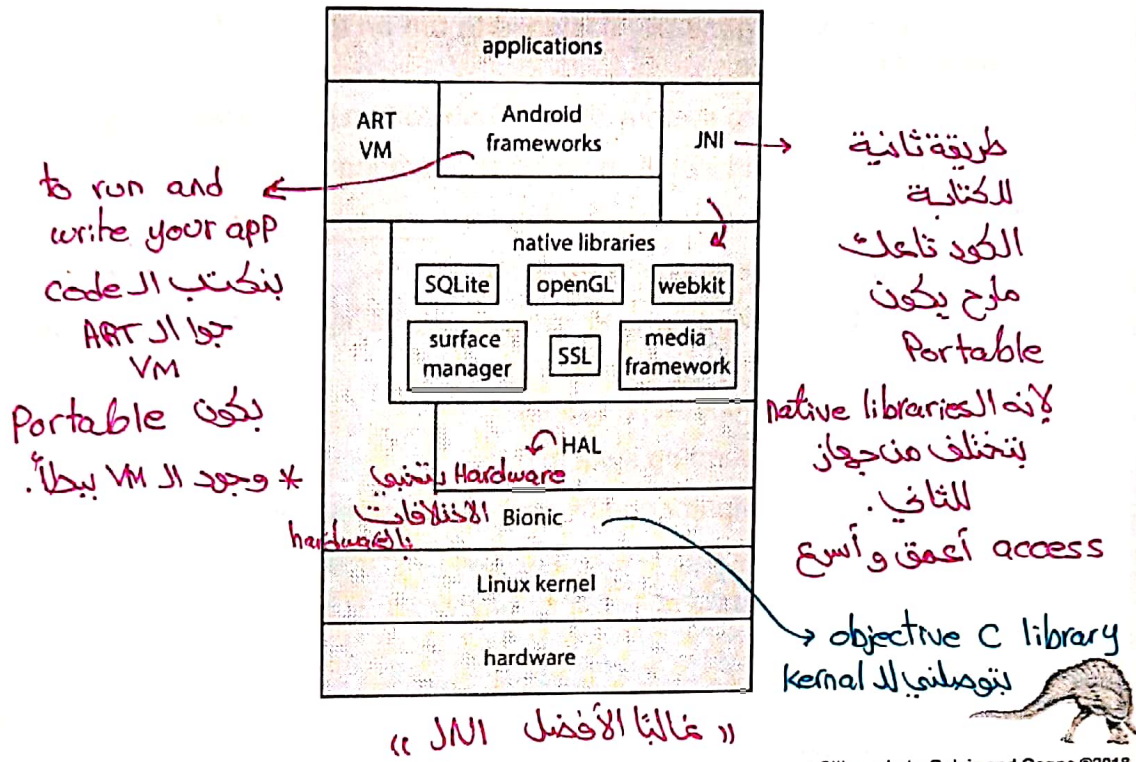 applications
ART
VM
Android
frameworks
JNI
native libraries
SQLite
openGL
webkit
surface
manager
SSL
media
framework
HAL
Bionic
Linux kernel
hardware
to run and
write your app
بنكتب ال code
جوا ال ART
VM
بكون Portable
* وجود ال VM ببطأ.
طريقة ثانية
للكتابة
الكود تاعك
مارح يكون
Portable
لإنه ال native libraries
بتختلف من جهاز
للثاني.
access أعمق وأسرع
Hardware بتخبي
الاختلافات
بال hardware
objective C library
بتوصلني لل kernal
"غالبًا الأفضل JNI"